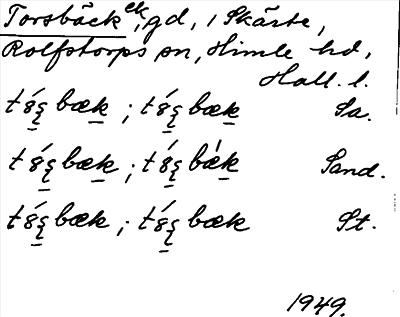 Torsbäck ek, gd, i Skärte,
Rolfstorps sn, Himle hd,
Hall. l.
tó̤ş bæk ; tó̤ş bæk Sa.
tó̤ş bæk ; tó̤ş bæ̀k Sand.
tó̤ş bæk ; tó̤ş bæk St.
1949.